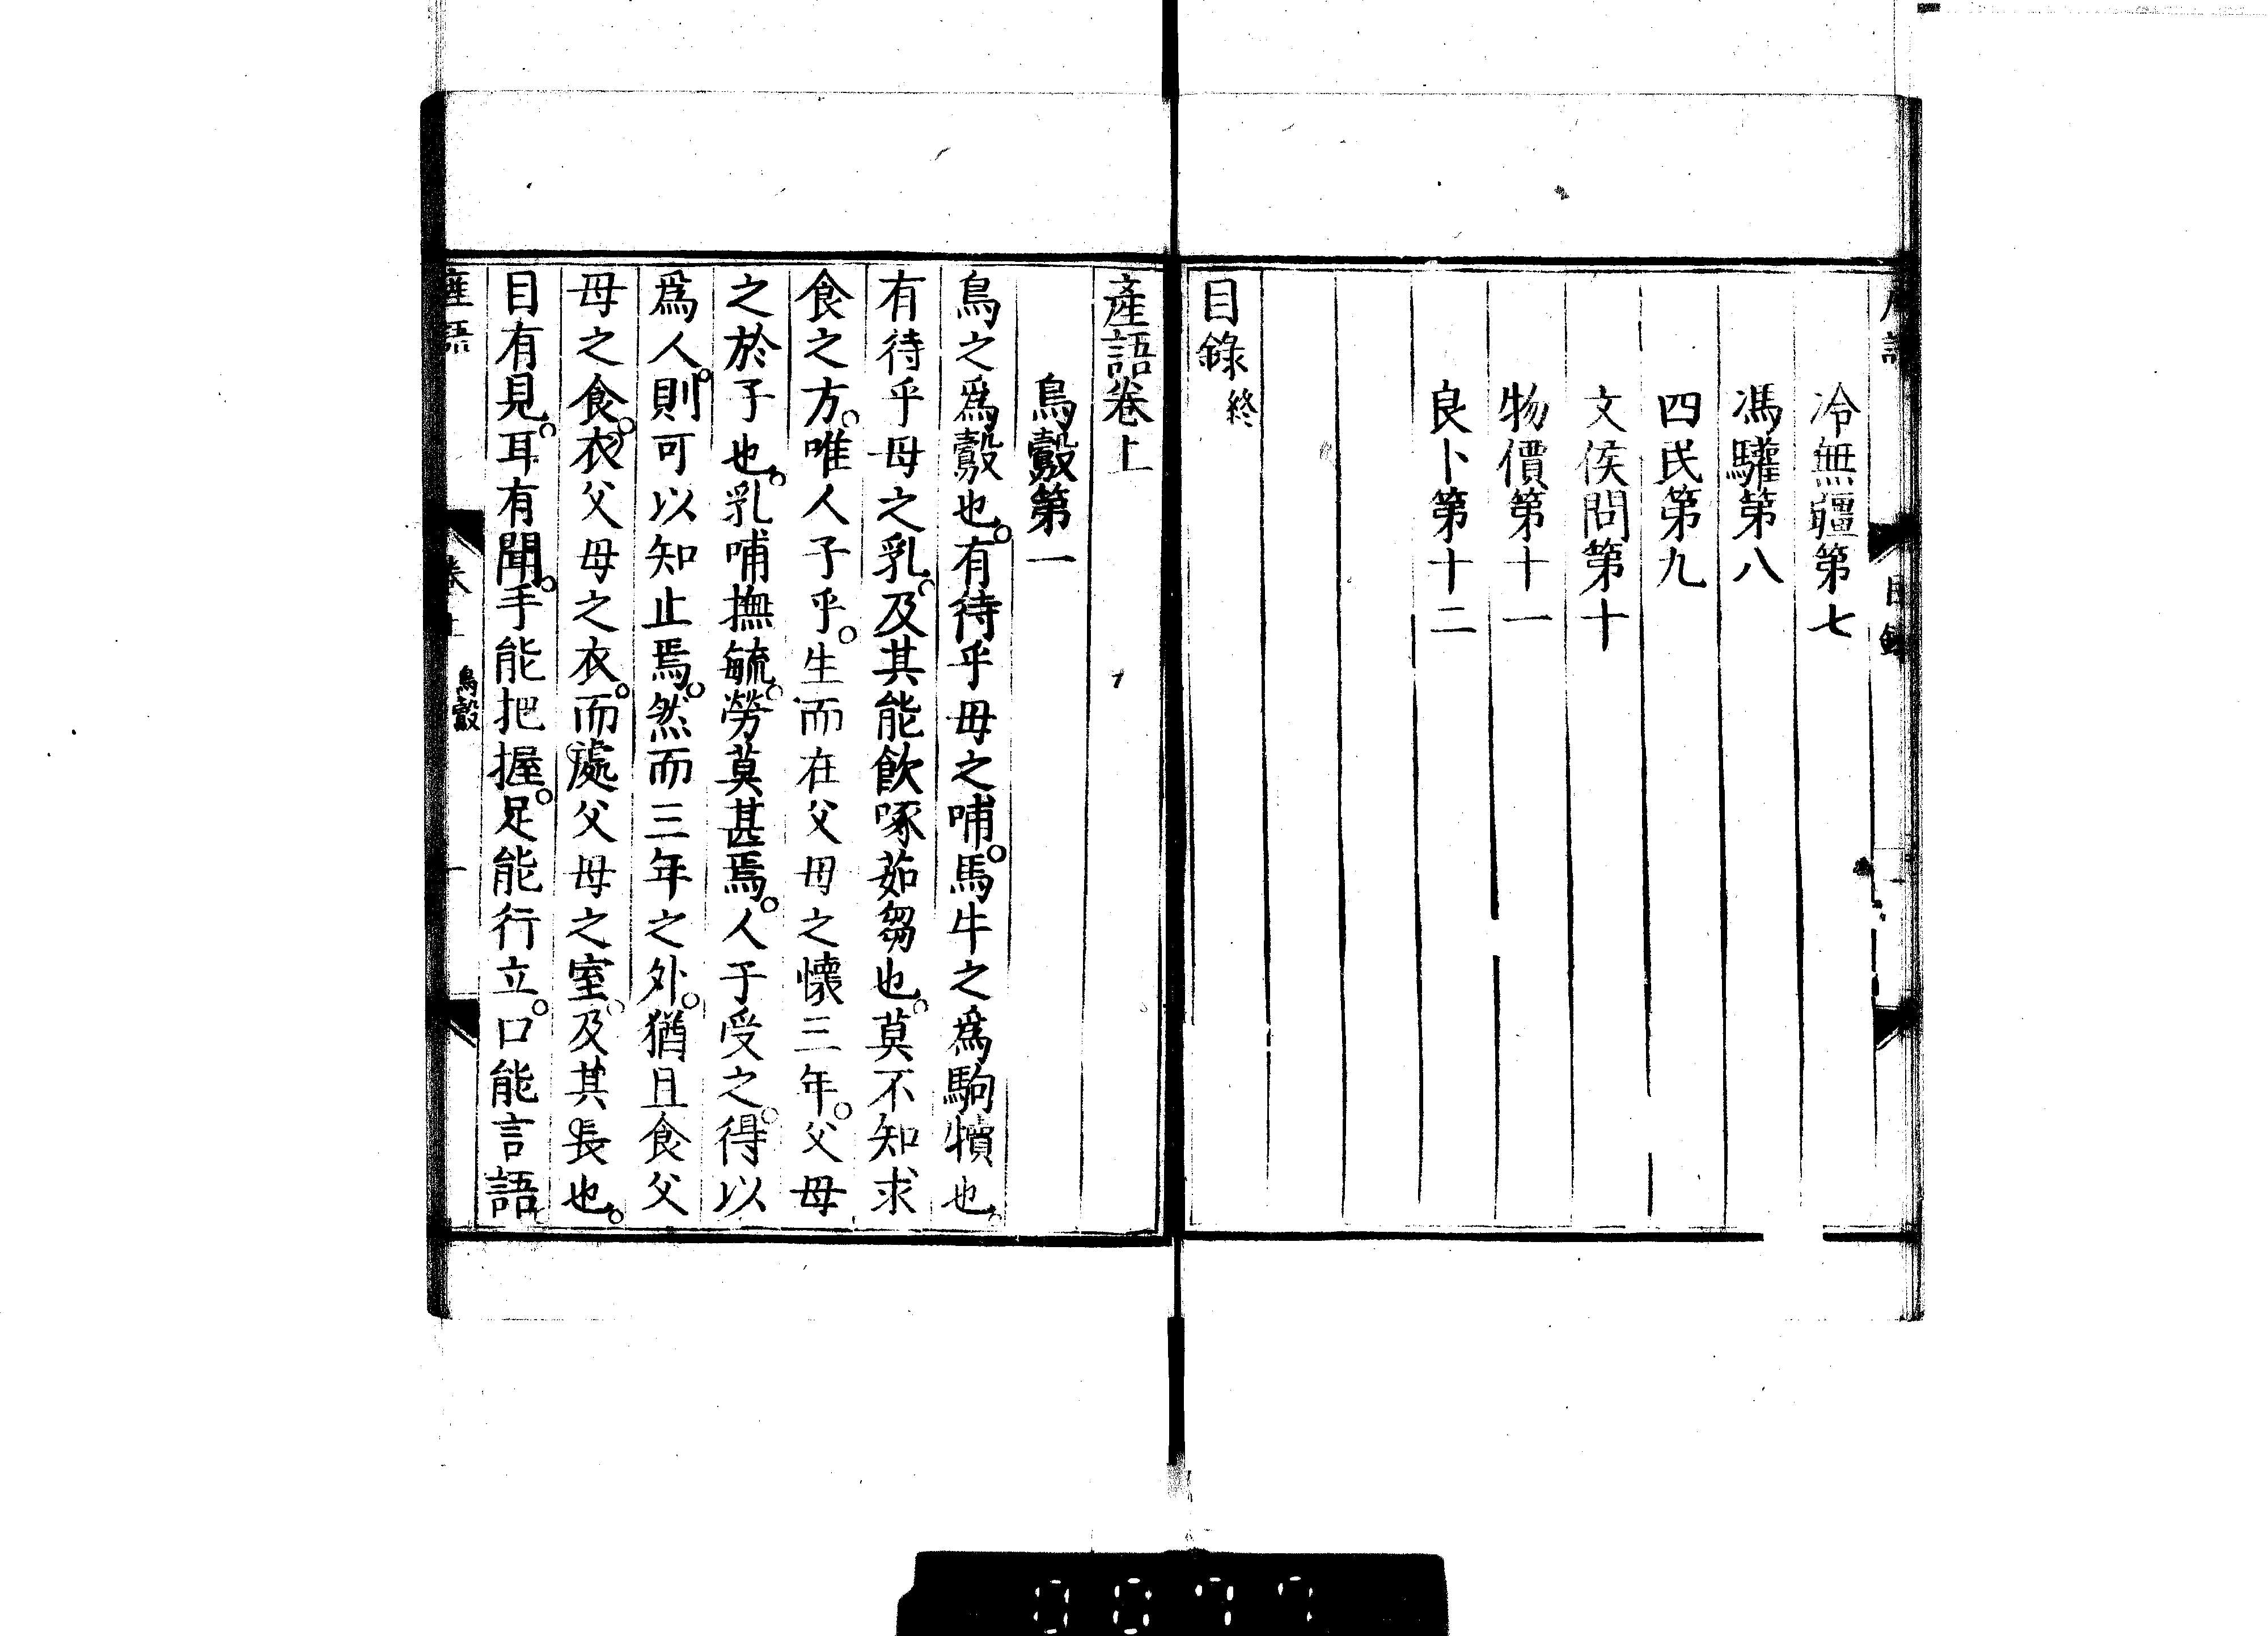 冷無疆第七
馮驩第八
四民第九
文侯問第十
物價第十一
良卜第十二
目錄終
產語卷上
鳥鷇第一
鳥之爲鷇也。有待乎母之哺。馬牛之爲駒犢也。
有待乎母之乳。及其能飲啄茹芻也。莫不知求
食之方。唯人子乎。生而在父母之懷三年。父母
之於子也。乳哺撫毓。勞莫甚焉。人子受之。得以
爲人。則可以知止焉。然而三年之外。猶且食父
母之食。衣父母之衣。而處父母之室。及其長也。
目有見。耳有聞。手能把握。足能行立。口能言語。
產語
卷上
鳥鷇
一